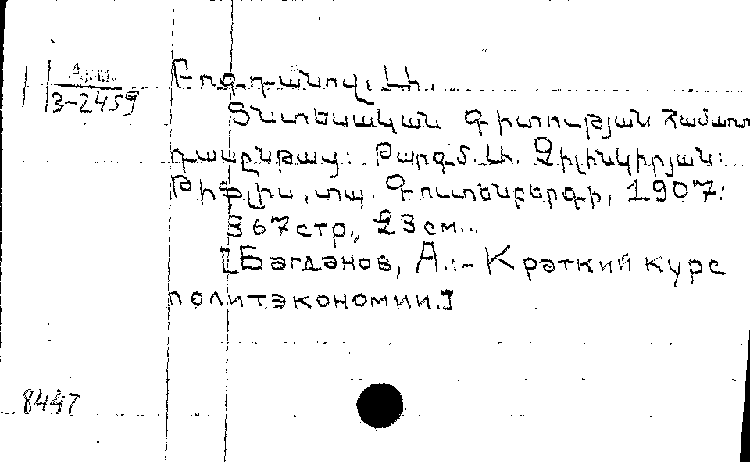 Арм.
3-2459
Բոգդանով, Ա.
Տնտեսական գիտության համառոտ
դասընթաց: Թարգմ. Ա. Չիլինկիրյան:
Թիֆլիս, տպ. Գուտենբերգի, 1907:
367стр., 23см.
[Богданов, А.- Краткий курс
политэкономии.]
8447